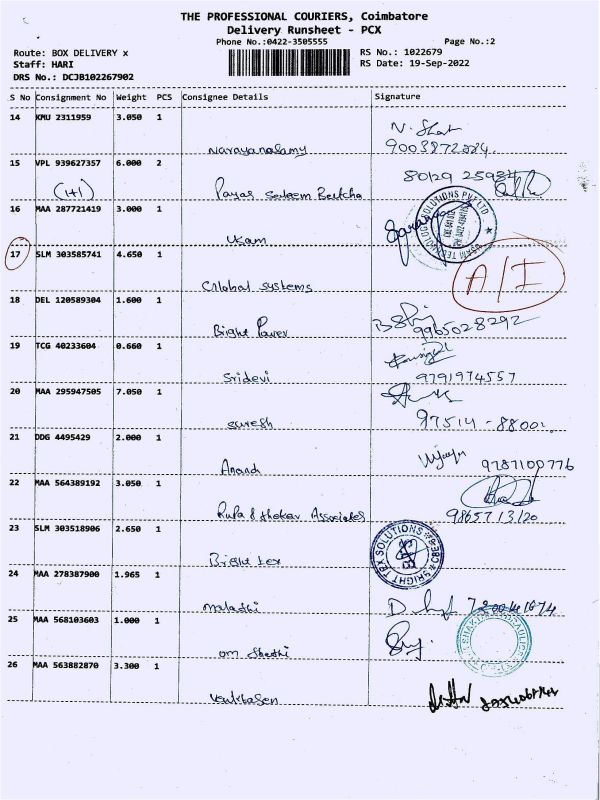 THE PROFESSIONAL COURIERS, Coimbatore
Delivery Runsheet - PCX
Phone No.:0422-3505555 Page No.:2
Route: BOX DELIVERY x RS No.: 1022679
Staff: HARI RS Date: 19-Sep-2022
DRS No.: DC3B102267902
S No Consignment No Weight PCS Consignee Details Signature
14 KMU 2311959 3.050 1
Narayanasamy 9003872884
15 VPL 939627357 6.000 2
(1+1)
16 MAA 287721419 3.000 1
Ukam
17 SLM 303585741 4.650 1 A/I
Global Systems
18 DEL 120589304 1.600 1
Bright Power 9965028292
19 TCG 40233604 0.660 1
Sridevi 9791974557
20 MAA 295947505 7.050 1
Suresh 97514-88001
21 DDG 4495429 2.000 1
Anand 9787100776
22 MAA 564389192 3.050 1
Associates 9865713120
23 SLM 303518906 2.650 1
Bright tex
24 MAA 278387900 1.965 1
Malathi
25 MAA 568103603 1.000 1
Om Shakthi
26 MAA 563882870 3.300 1